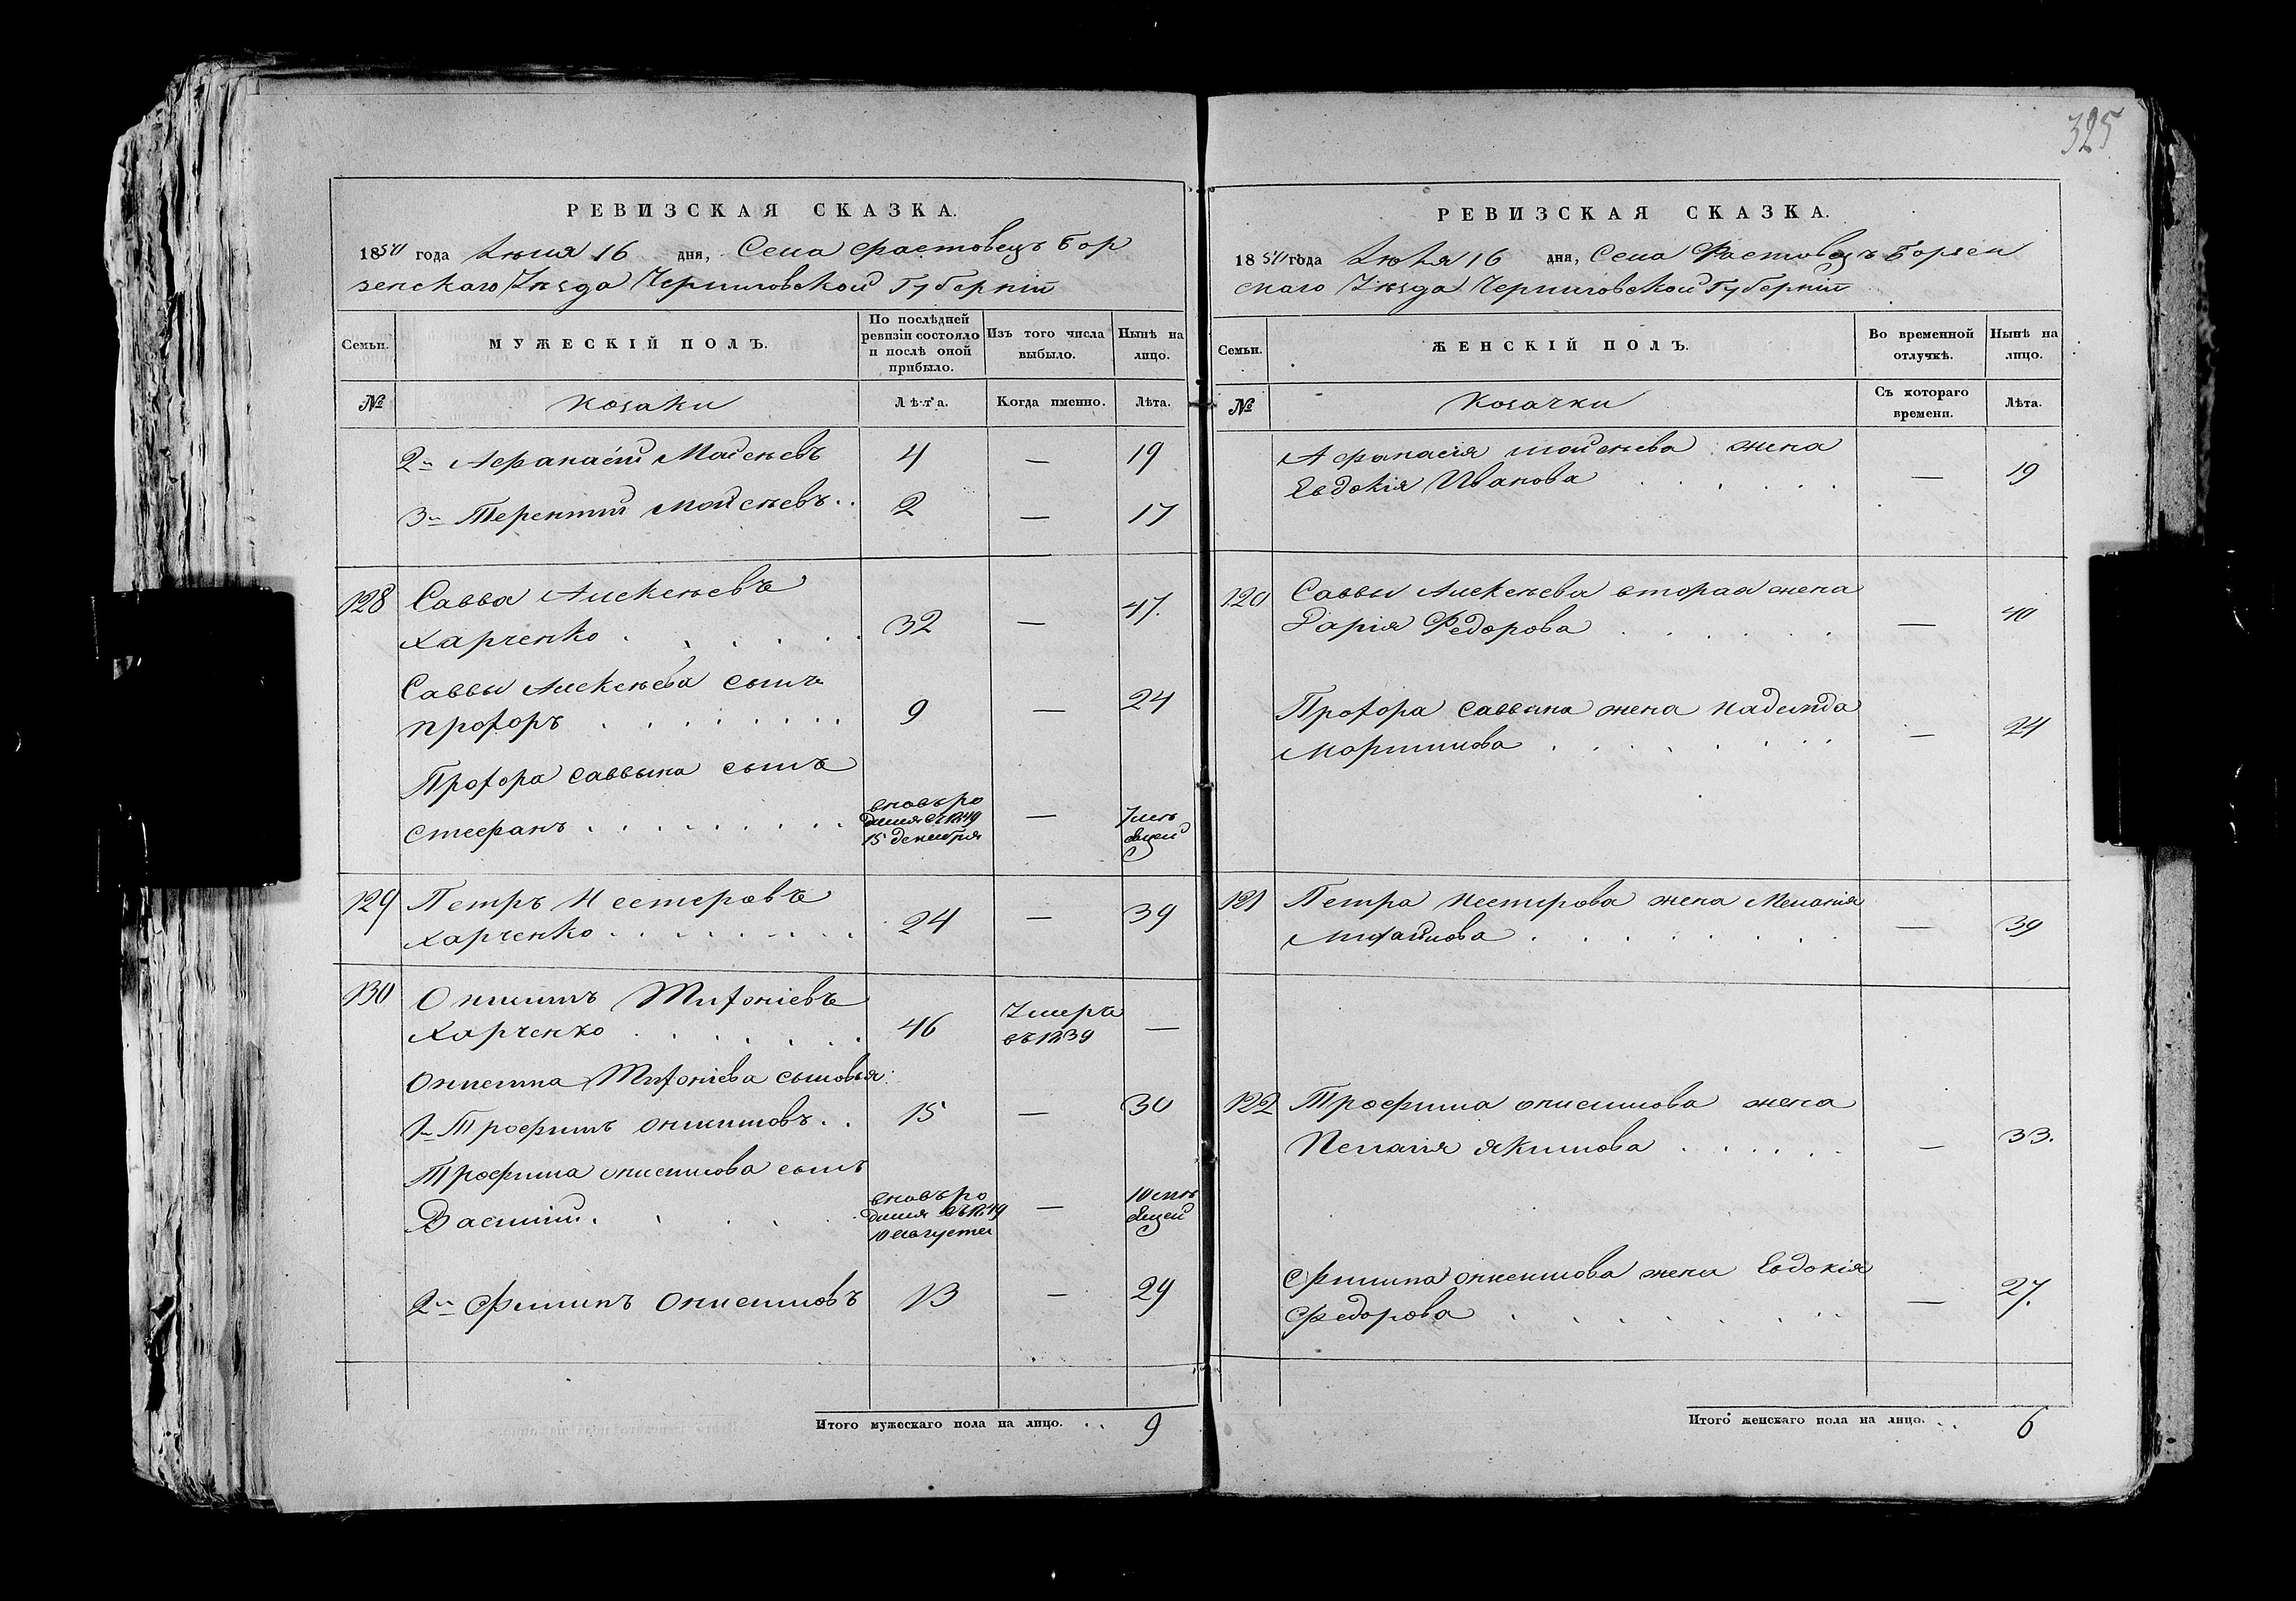 325
РЕВИЗСКАЯ СКАЗКА.
1850 года Июня 16 дня, Села Фастовець Бор
зенскаго Уѣзда Черниговской Губерніи
Семьи.
МУЖЕСКІЙ ПОЛЪ.
По послѣдней ревизіи состояло и послѣ оной прибыло.
Изъ того числа выбыло.
Нынѣ на лицо.
№
Козаки
Лѣта.
Когда именно.
Лѣта.
2й Афанасій Мойсѣевъ 4 — 19
3й Терентій Мойсѣевъ . . 2 — 17
128 Савва Алексѣевъ
Харченко . . . . . 32 — 47.
Саввы Алексѣева сынъ
Прохоръ . . . . . . . . 9 — 24
Прохора Саввына сынъ
Стефанъ . . . . . . . . вновь ро
дился въ 1849
15 декабря — 7 мѣ
сяцей
129 Петръ Нестеровъ
Харченко . . . . . . . . 24 — 39
130 Онисимъ Тихоніевъ
Харченко . . . . . . 46 Умеръ
въ 1839 —
Онисима Тихоніева сыновья:
1й Трофимъ Онисимовъ . . 15 — 30
Трофима Онисимова сынъ
Василій . . . . . вновь ро
дился въ 1849
10 августа — 10 мѣ
сяцей
2й Филипъ Онисимовъ 13 — 29
Итого мужескаго пола на лицо. . . 9
РЕВИЗСКАЯ СКАЗКА.
1850 года Июня 16 дня, Села Фастовець Борзен
скаго Уѣзда Черниговской Губерніи
Семьи.
ЖЕНСКІЙ ПОЛЪ.
Во временной отлучкѣ.
Нынѣ на лицо.
№
Козачки
Съ котораго времени.
Лѣта.
Афанасія Мойсѣева жена
Евдокія Иванова . . . . . — 19
120 Саввы Алексѣева вторая жена
Дарія Федорова . . . . . — 40
Прохора Саввына жена Надежда
Мартинова . . . . . . . — 24
121 Петра Нестерова жена Меланія
Михайлова . . . . . . . — 39
122 Трофима Онисимова жена
Пелагія Якимова . . . . . — 33.
Филипа Онисимова жена Евдокія
Федорова . . . . . . . . — 27.
Итого женскаго пола на лицо. . . 6